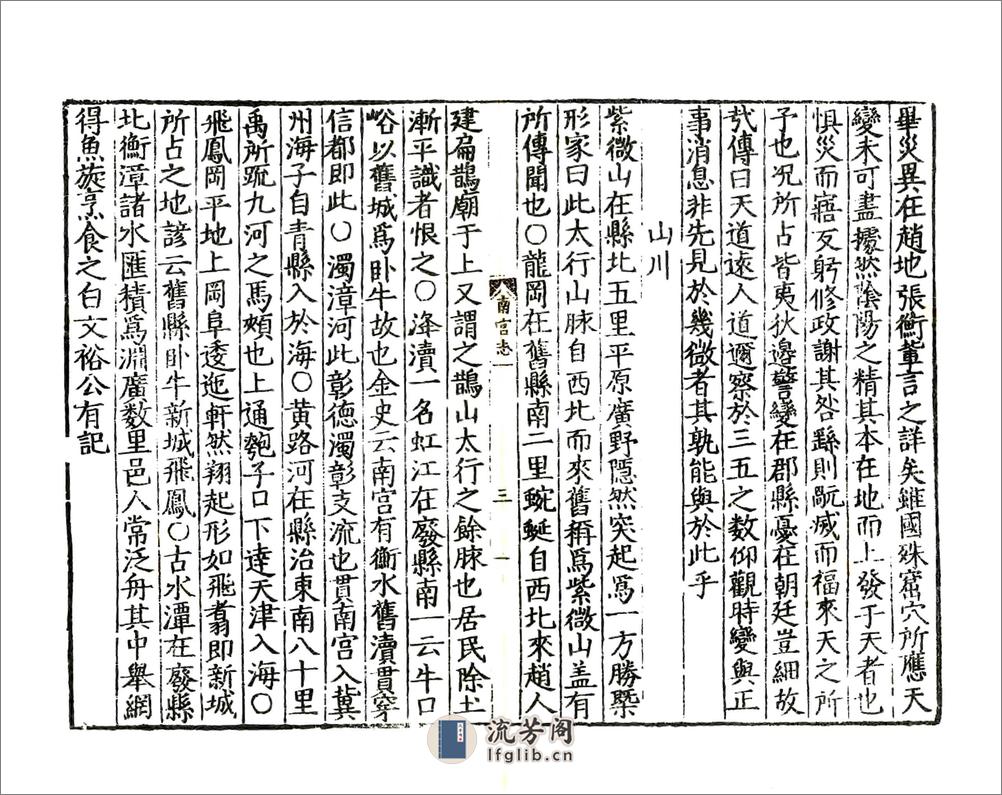 畢災異在趙地張衡輩言之詳矣雖國殊窋穴所應天
變未可盡據然陰陽之精其本在地而上發于天者也
惧災而寤反躬修政謝其咎繇則毗威而福來天之所
予也况所占皆夷狄邊警變在郡縣憂在朝廷豈細故
㢤傳曰天道遠人道邇察於三五之数仰觀時變與正
事消息非先見於幾微者其孰能與於此乎
山川
紫微山在縣北五里平原廣野隱然突起爲一方勝槩
形家曰此太行山脉自西北而來舊稱爲紫微山盖有
所傳聞也〇龍岡在舊縣南二里蜿蜒自西北來趙人
南宫志一
三
一
建扁鵲廟于上又謂之鵲山太行之餘脉也居民除土
漸平識者恨之〇洚瀆一名虹江在廢縣南一云牛口
峪以舊城爲卧牛故也金史云南宫有衡水舊瀆貫穿
信都即此〇濁漳河此彰德濁彰支流也貫南宫入冀
州海子自青縣入於海〇黄路河在縣治東南八十里
禹所䟽九河之馬頰也上通匏子口下逹天津入海〇
飛鳳岡平地上岡阜逶迤軒然翔起形如飛翥即新城
所占之地諺云舊縣卧牛新城飛鳳〇古水潭在廢縣
北衡漳諸水匯積爲淵廣数里邑人常泛舟其中舉網
得魚旋烹食之白文裕公有記
流芳阁
lfglib.cn